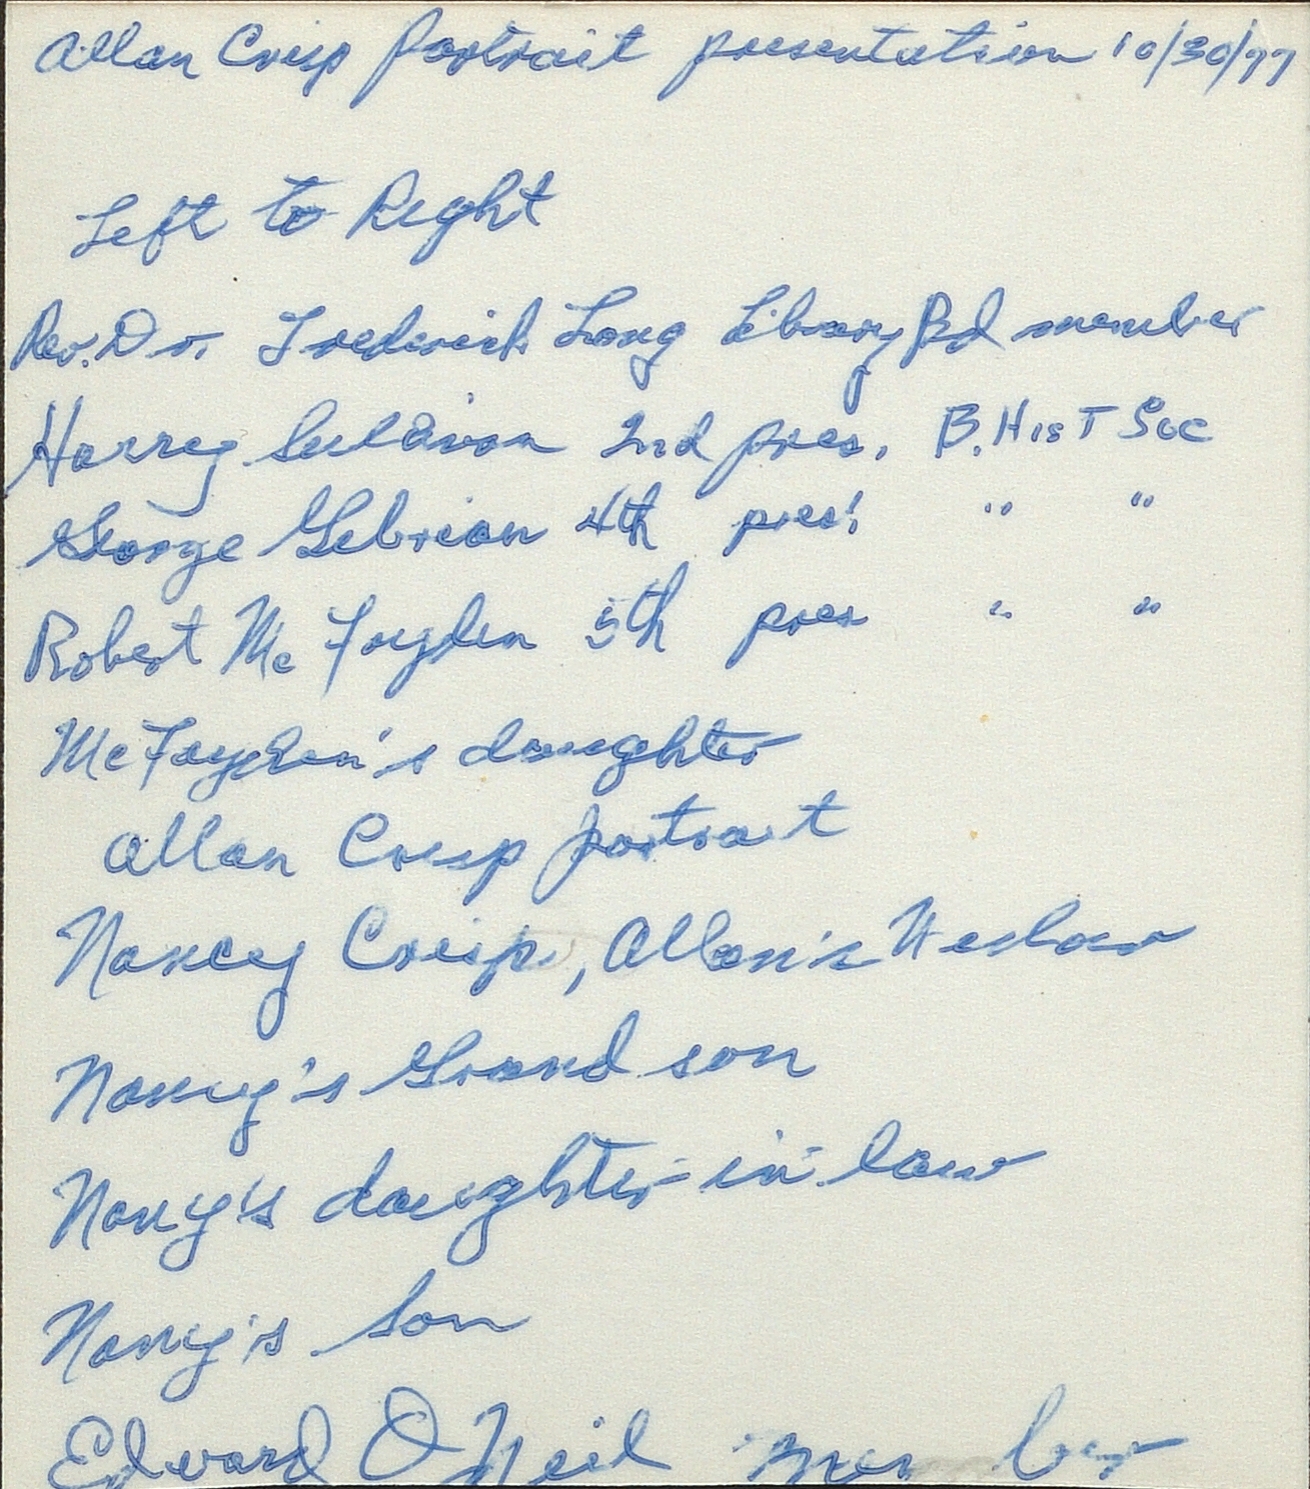 Allan Crisp portrait presentation 10/30/97
Left to Right
Rev. Dr. Frederick Long Library Bd member
Harrey Sullivan 2nd pres. B. HisT Soc
George Gebrian 4th pres. " "
Robert Mc Fayden 5th pres " "
McFayden's daughter
Allan Crisp portrait
Nancy Crisp, Allan's
Nancy's Grandson
Nancy's daughter-in-law
Nancy's Son
Edward O'Neil